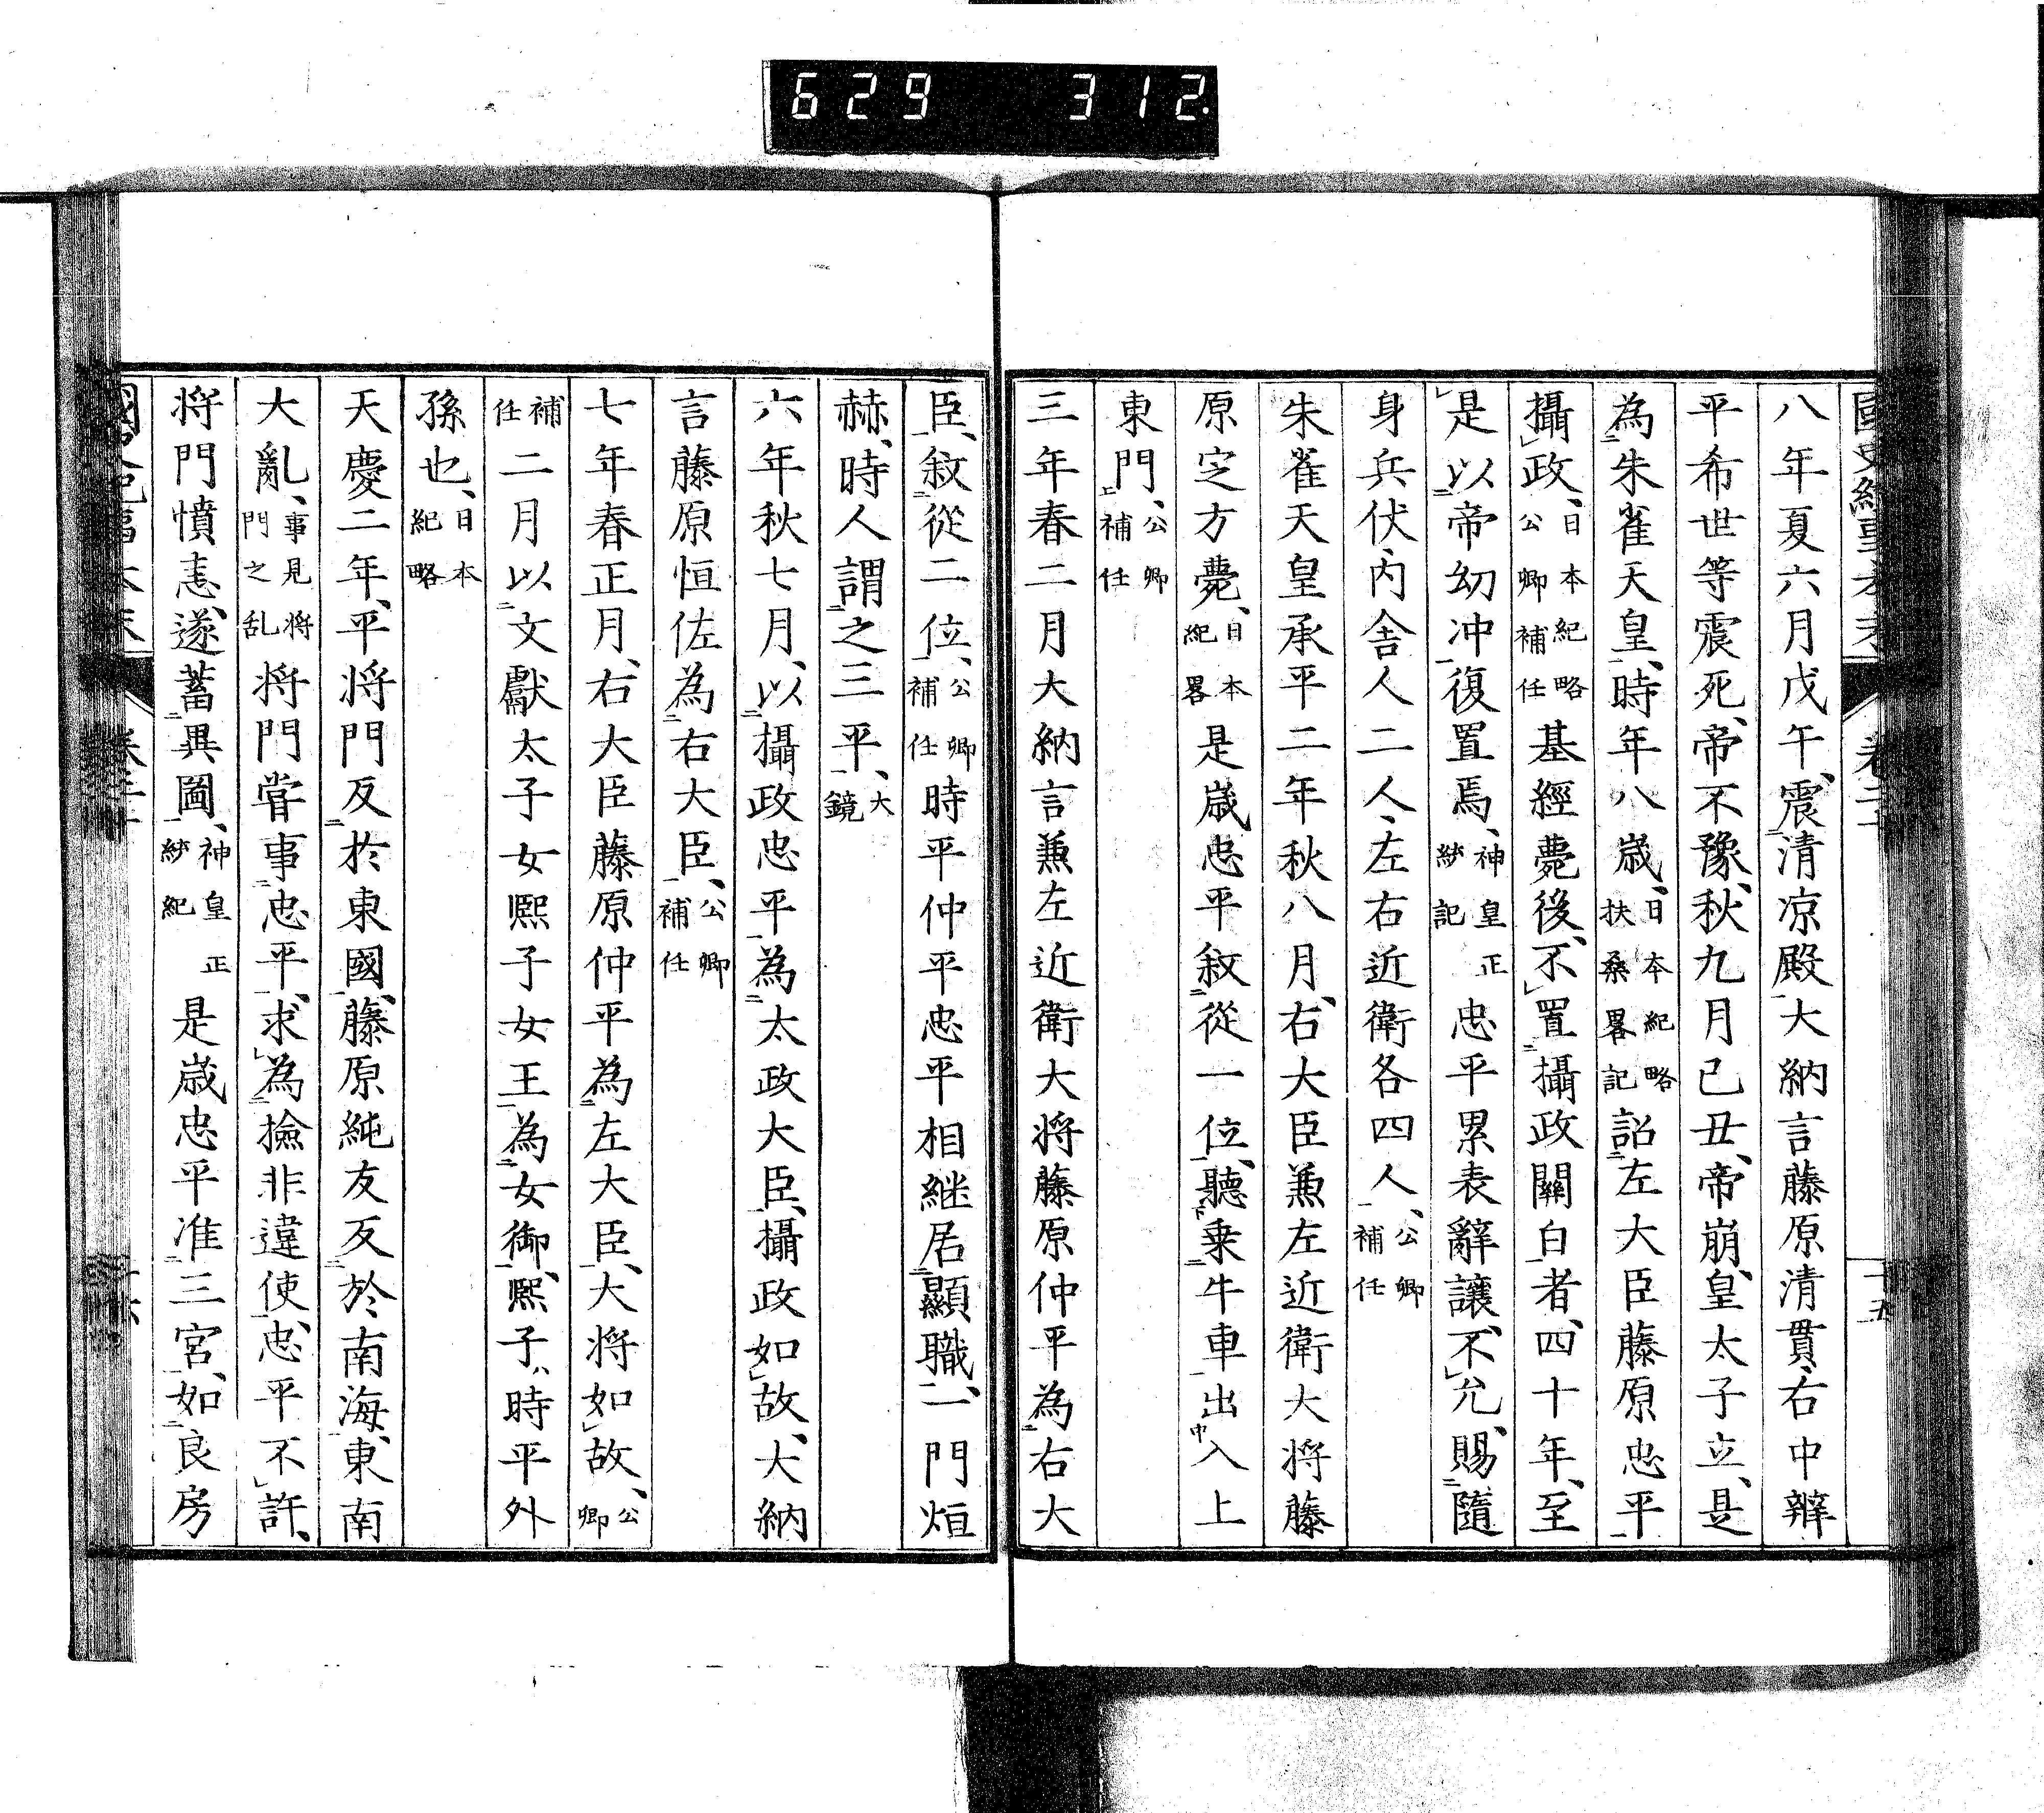 629 312.
八年夏六月戊午、震清凉殿大納言藤原清貫、右中辨
平希世等震死、帝不豫、秋九月己丑、帝崩、皇太子立、是
為朱雀天皇、時年八歳、日本紀略扶桑畧記詔左大臣藤原忠平
攝政、日本紀略公卿補任基經薨後、不置攝政關白者、四十年、至
是以帝幼冲復置焉、神皇正統記忠平累表辭讓、不允、賜隨
身兵仗、内舎人二人、左右近衛各四人、公卿補任
朱雀天皇承平二年秋八月、右大臣兼左近衛大将藤
原定方薨、日本紀畧是歳忠平叙從一位、聽乗牛車出入上
東門、公卿補任
三年春二月大納言兼左近衛大将藤原仲平為右大
臣、叙從二位、公卿補任時平仲平忠平相継居顯職、一門烜
赫、時人謂之三平、大鏡
六年秋七月、以攝政忠平為太政大臣、攝政如故、大納
言藤原恒佐為右大臣、公卿補任
七年春正月、右大臣藤原仲平為左大臣、大将如故、公卿
補任二月以文獻太子女熙子女王為女御、熙子、時平外
孫也、日本紀略
天慶二年、平将門反於東國、藤原純友反於南海、東南
大亂、事見将門之乱将門嘗事忠平、求為撿非違使、忠平不許、
将門憤恚、遂蓄異圖、神皇正統紀是歳忠平准三宮、如良房